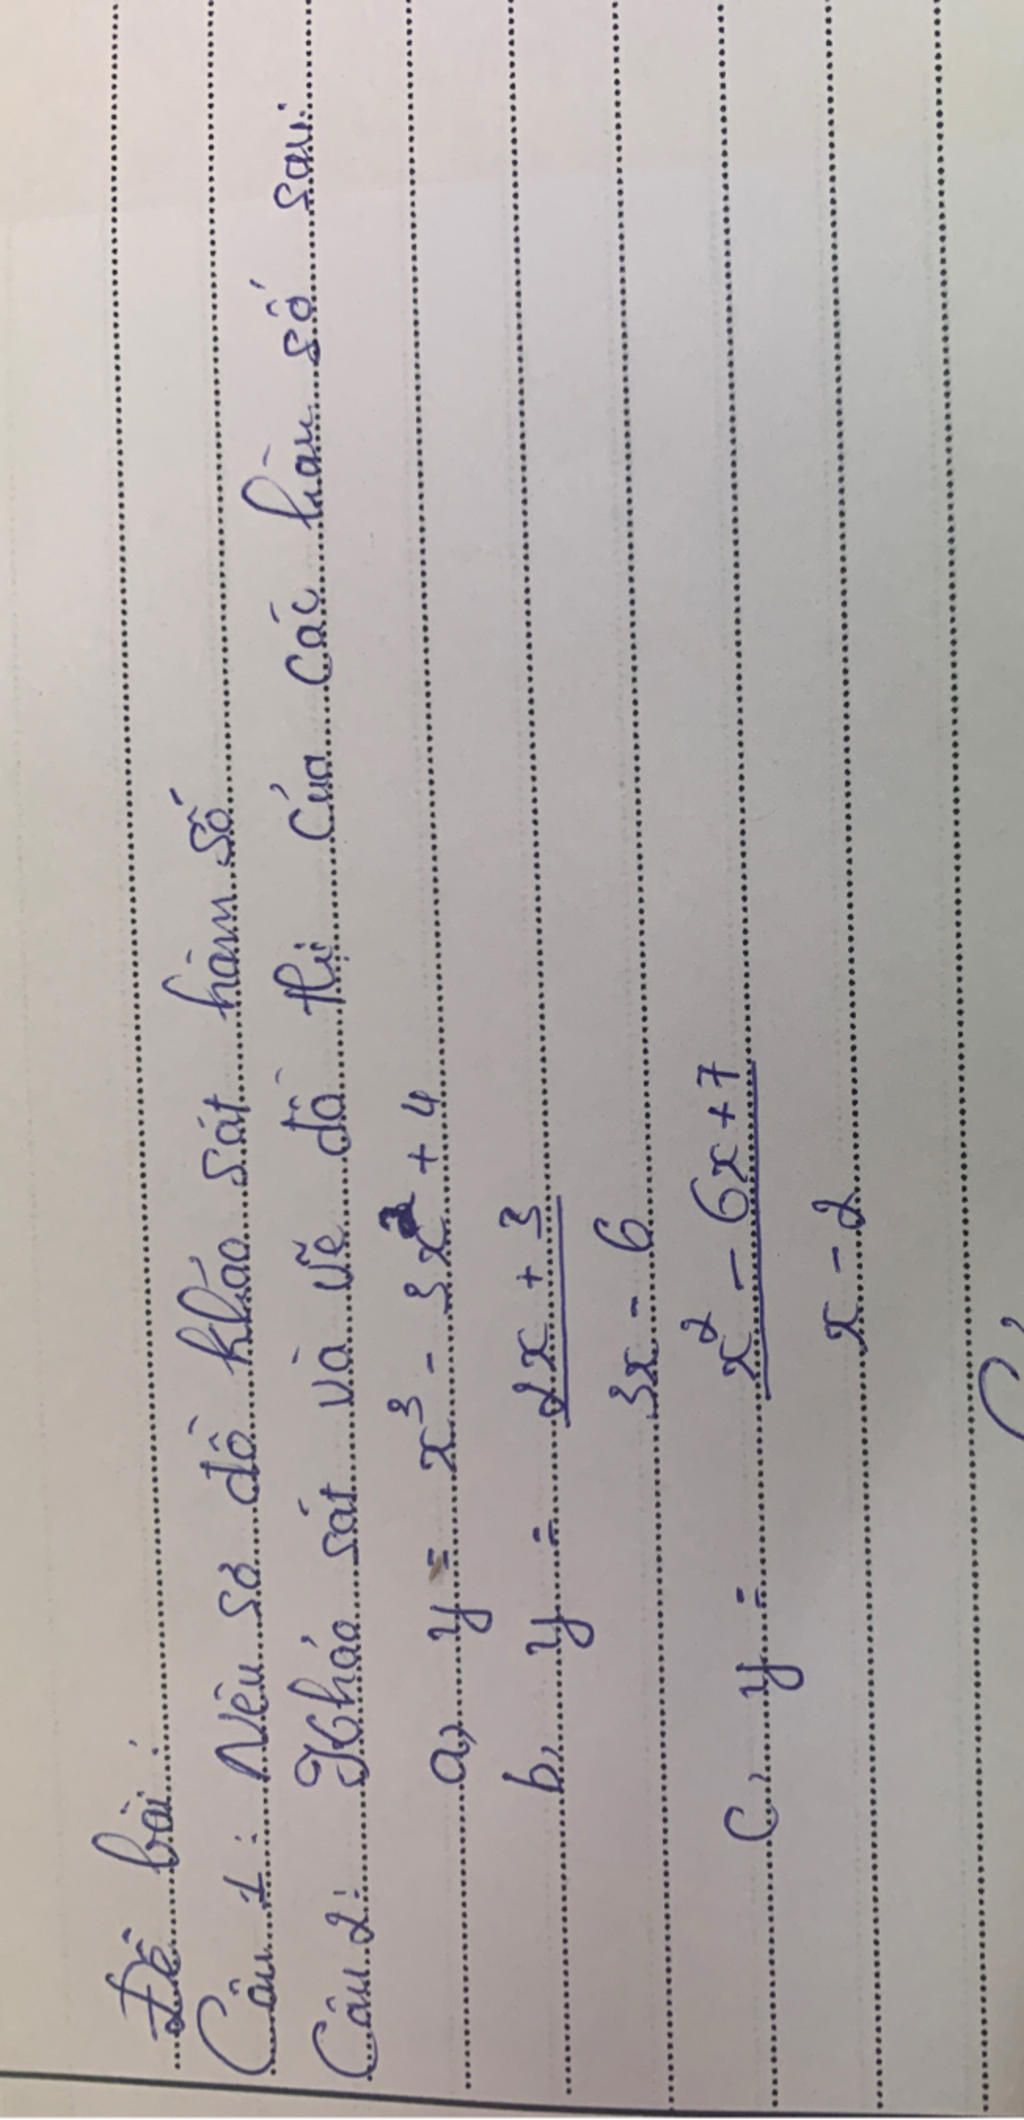 Đề bài:
Câu 1: Nêu sơ đồ khảo sát hàm số
Câu 2: Khảo sát và vẽ đồ thị của các hàm số sau:
a, y = x³ - 3x² + 4
b, y = 2x + 3
3x - 6
c, y = x² - 6x + 7
x - 2